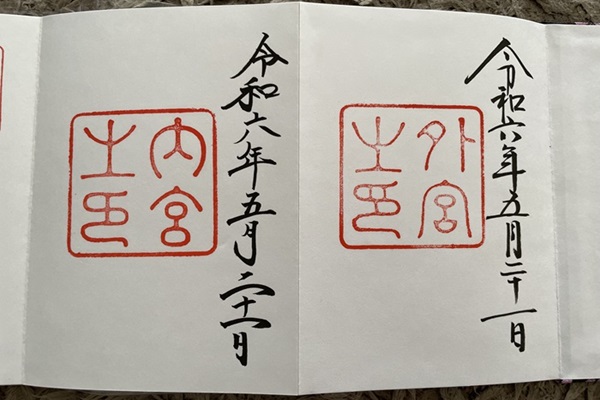 令和六年五月二十一日
外宮
之印
令和六年五月二十一日
内宮
之印